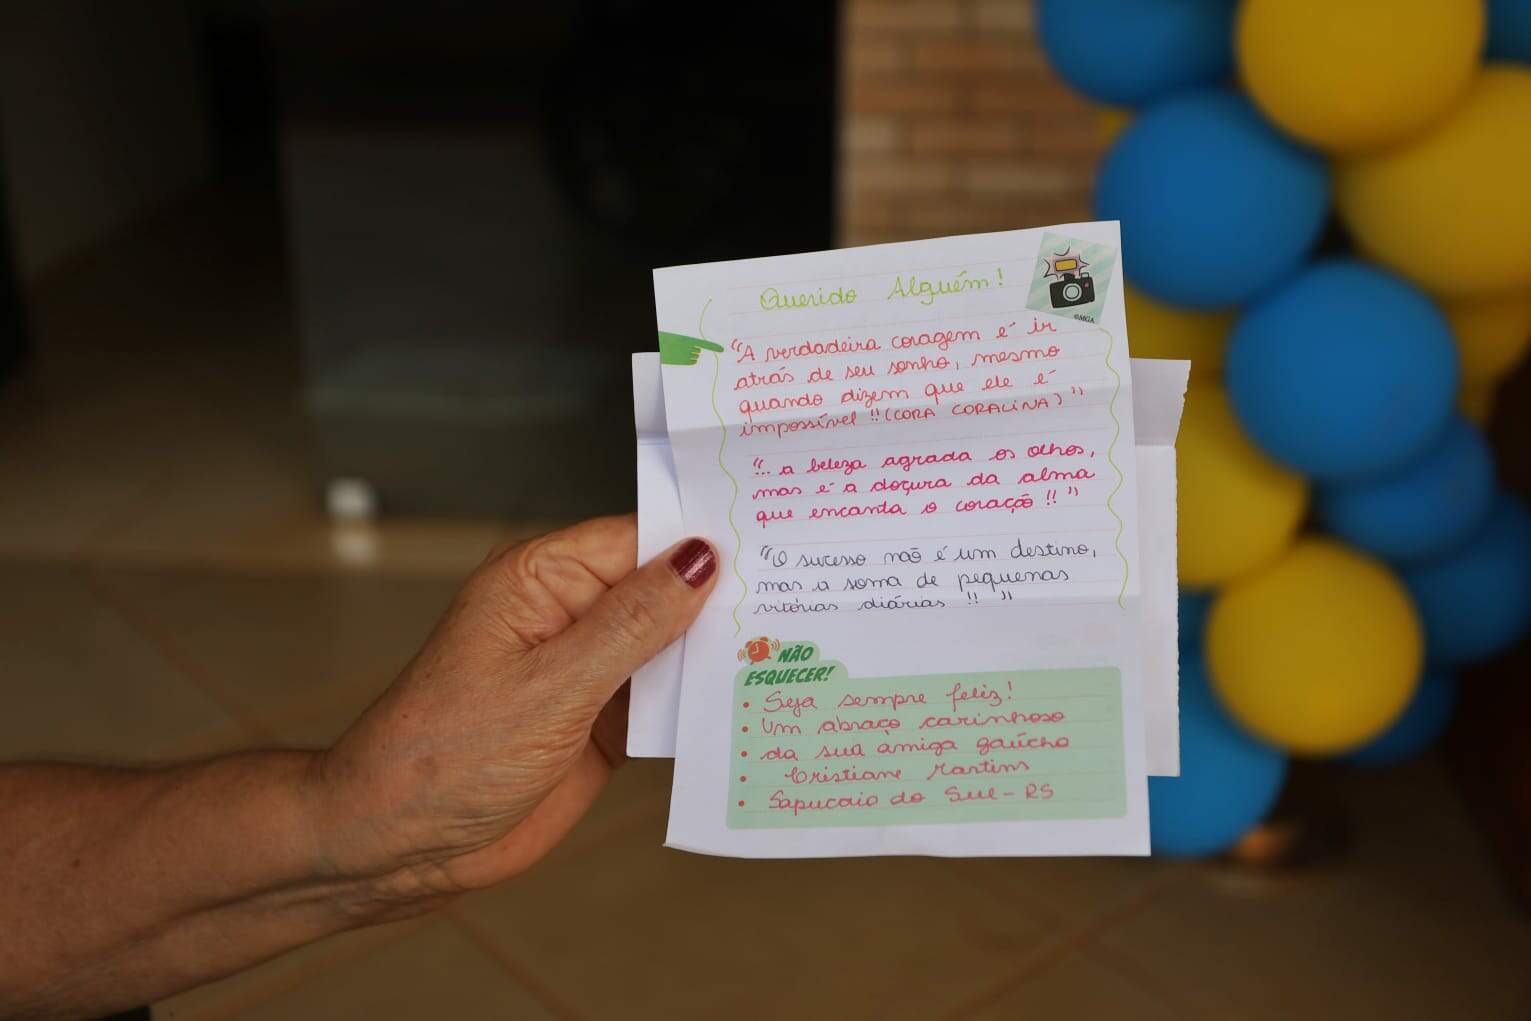 Querido Alguém!
©MGA
"A verdadeira coragem é ir
atrás de seu sonho, mesmo
quando dizem que ele é
impossível!! (CORA CORALINA)"
"... a beleza agrada os olhos,
mas é a doçura da alma
que encanta o coração!!"
"O sucesso não é um destino,
mas a soma de pequenas
vitórias diárias!!"
NÃO
ESQUECER!
• Seja sempre feliz!
• Um abraço carinhoso
• da sua amiga gaúcha
• Cristiane Martins
• Sapucaia do Sul - RS